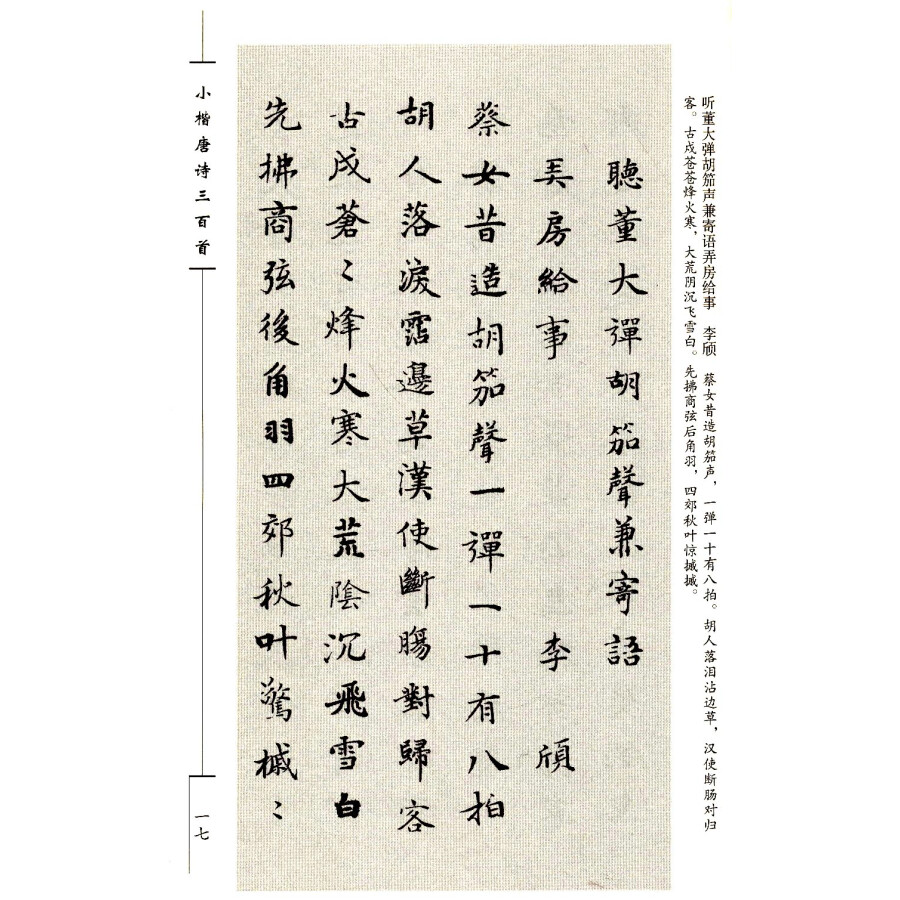 听董大弹胡笳声兼寄语弄房给事 李颀 蔡女昔造胡笳声，一弹一十有八拍。胡人落泪沾边草，汉使断肠对归
客。古戍苍苍烽火寒，大荒阴沉飞雪白。先拂商弦后角羽，四郊秋叶惊摵摵。
聽董大彈胡笳聲兼寄語
弄房給事 李頎
蔡女昔造胡笳聲一彈一十有八拍
胡人落淚霑邊草漢使斷腸對歸客
古戍蒼〻烽火寒大荒陰沉飛雪白
先拂商弦後角羽四郊秋叶驚摵〻
小楷唐诗三百首
一七